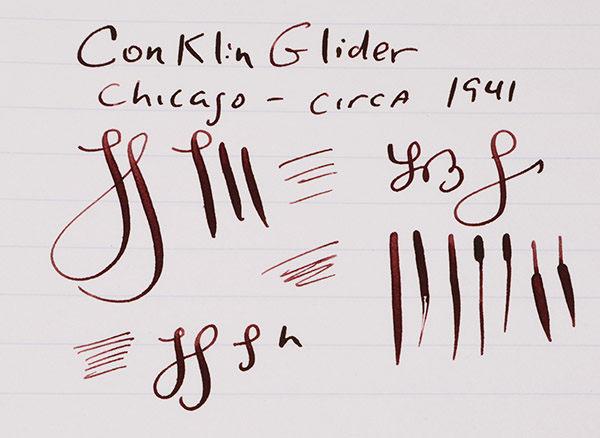 Conklin Glider
Chicago - circa 1941